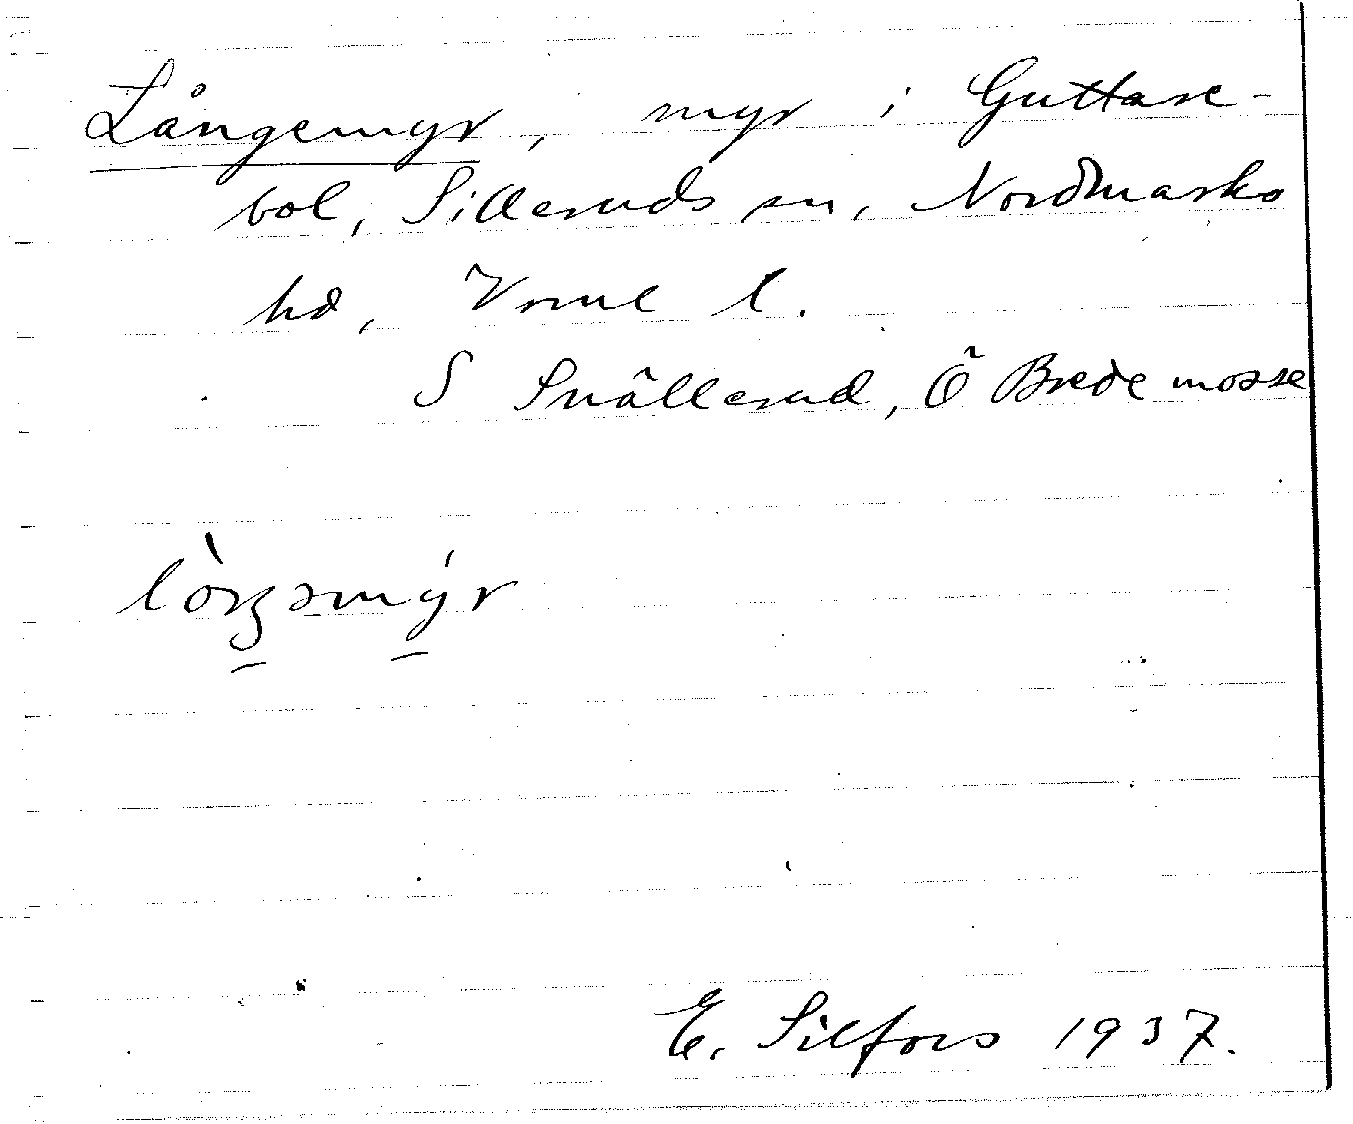 Långemyr, myr i Guttane-
bol, Silleruds sn, Nordmarks
hd, Vrml l.
S Snällerud, Ö Brede mosse
E. Silfors 1937.